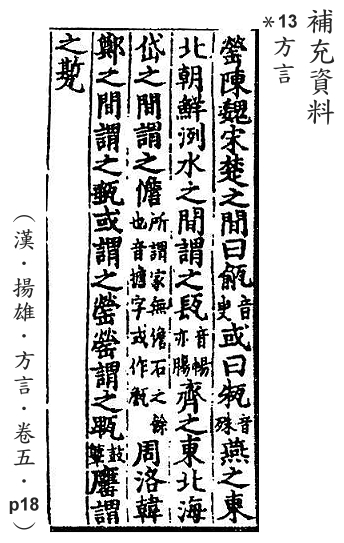 補充資料
*13 方言
罃陳魏宋楚之間曰㼶音臾或曰音殊燕之東
北朝鮮洌水之間謂之瓺音暢亦腸齊之東北海
岱之間謂之儋所謂家無儋石之餘也音擔字或作甔周洛韓
鄭之間謂之甀或謂之罃罃謂之鼓鼙謂
之
(漢・揚雄・方言・卷五・p18)